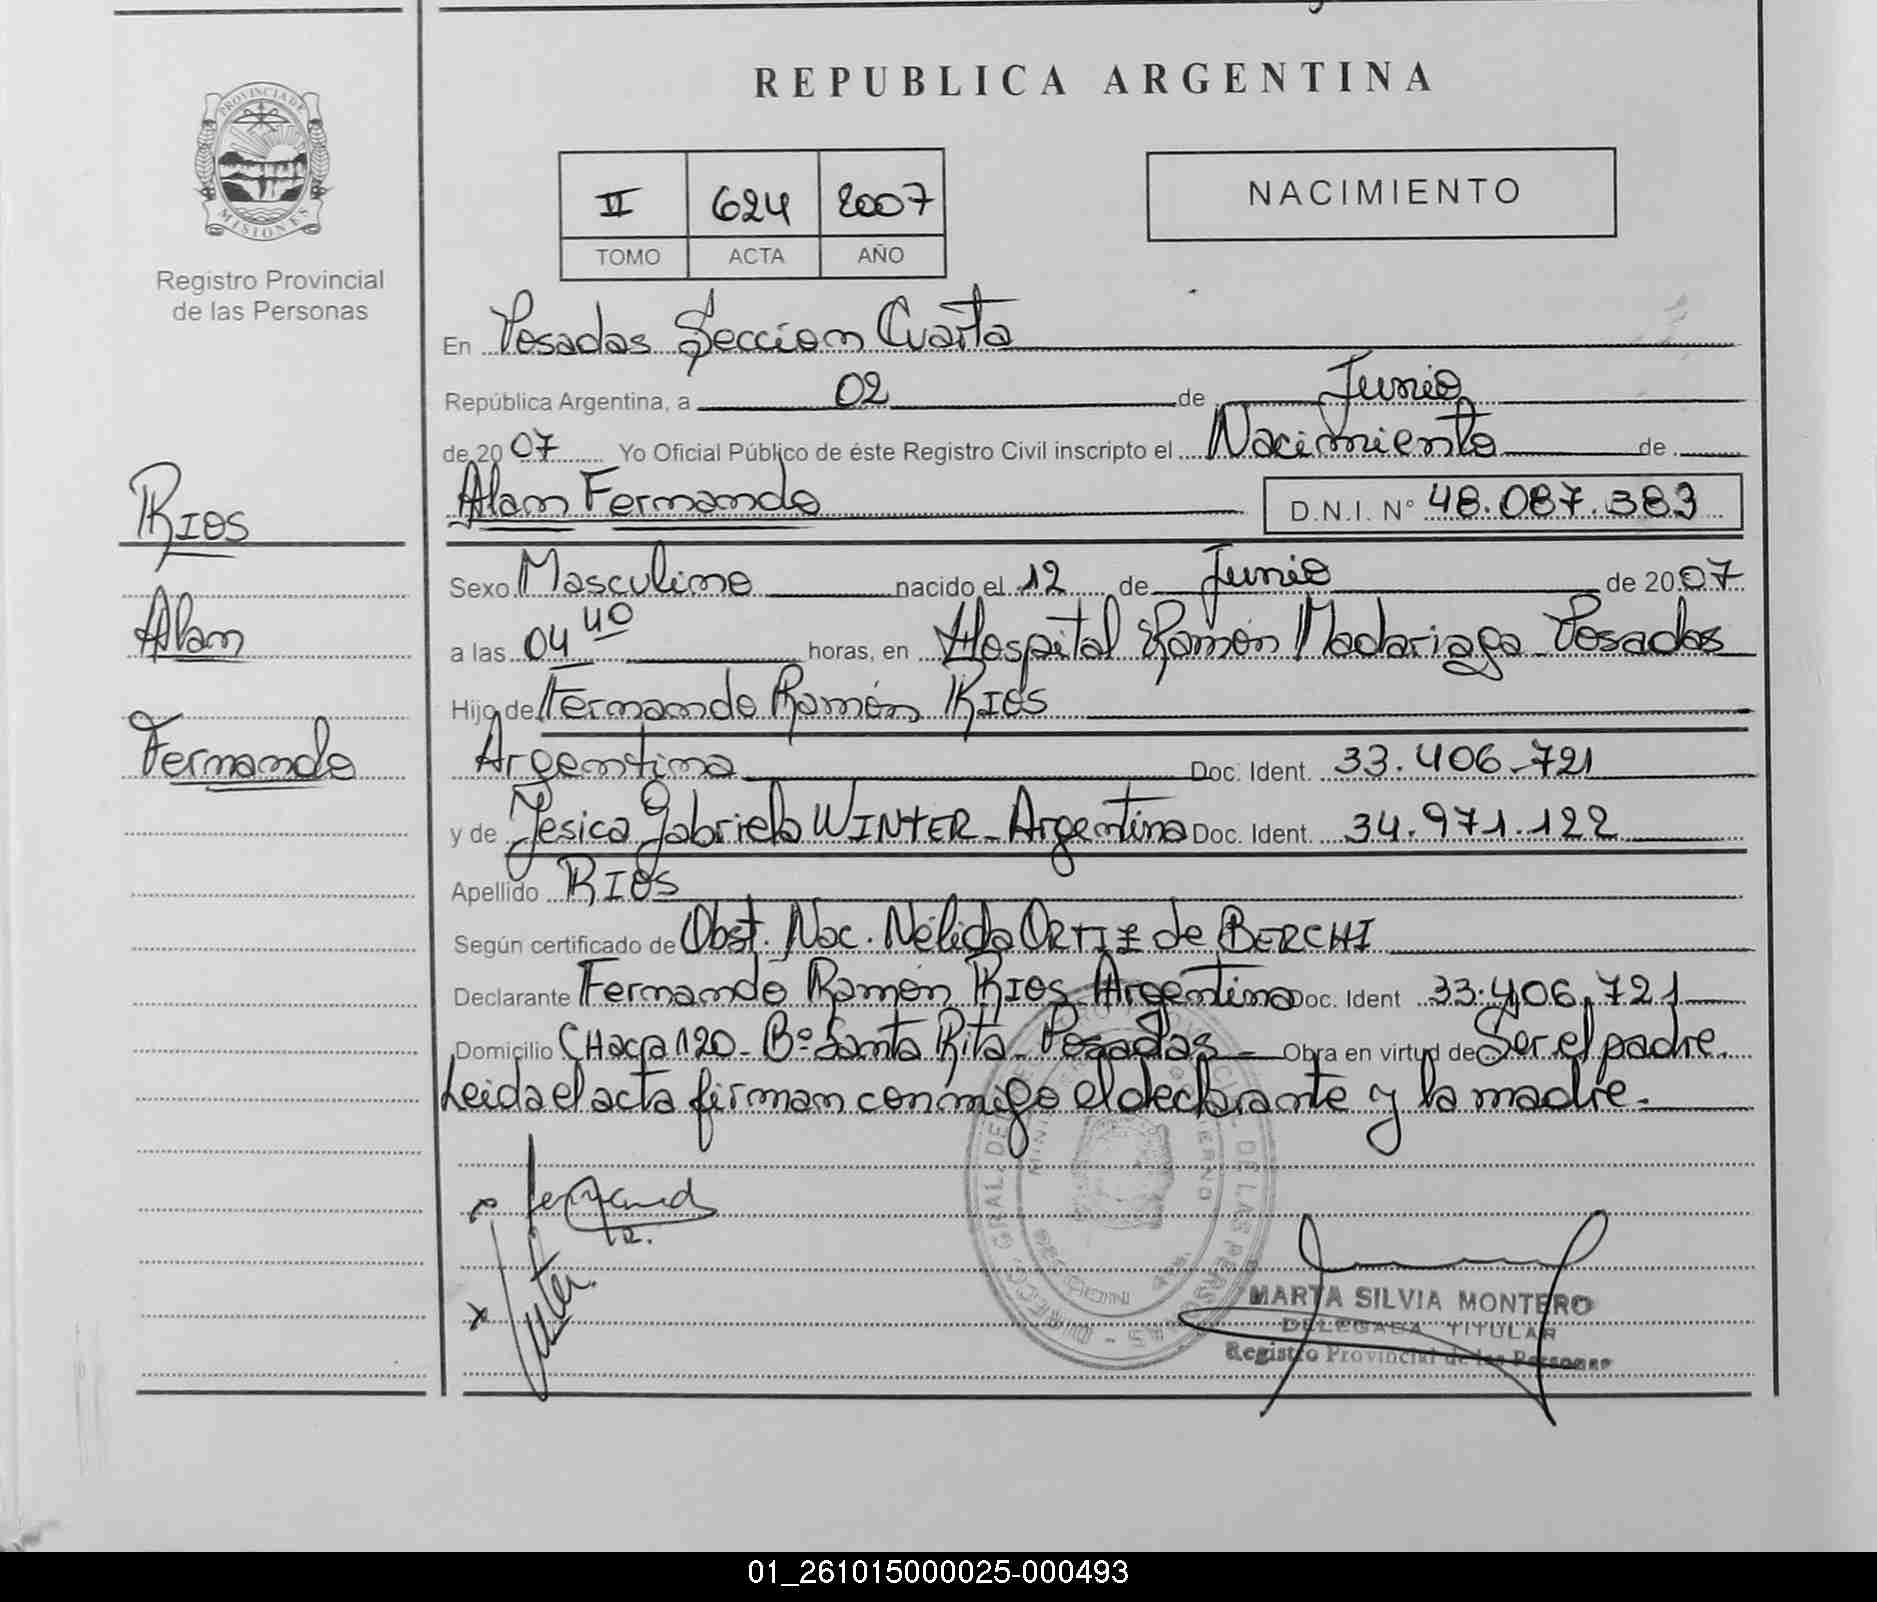 REPUBLICA ARGENTINA
PROVINCIA DE
MISIONES
Registro Provincial
de las Personas
II 624 2007
TOMO ACTA AÑO
NACIMIENTO
En Posadas Seccion Cuarta
República Argentina, a 02 de Junio
de 2007 Yo Oficial Público de éste Registro Civil inscripto el Nacimiento de
Alan Fernando D.N.I. N° 48.087.383
RIOS
Alan
Fernando
Sexo Masculino nacido el 12 de Junio de 2007
a las 04 40 horas, en Hospital Ramón Madariaga Posadas
Hijo de Fernando Ramón RIOS
Argentina Doc. Ident. 33.406.721
y de Jesica Gabriela WINTER - Argentina Doc. Ident. 34.971.122
Apellido RIOS
Según certificado de Obst. Nac. Nélida ORTIZ de BERCHI
Declarante Fernando Ramón RIOS Argentina Doc. Ident 33.406.721
Domicilio CHacra 120 - Bº Santa Rita - Posadas - Obra en virtud de Ser el padre.
Leida el acta firman conmigo el declarante y la madre.
MARTA SILVIA MONTERO
DELEGADA TITULAR
Registro Provincial de las Personas
01_261015000025-000493